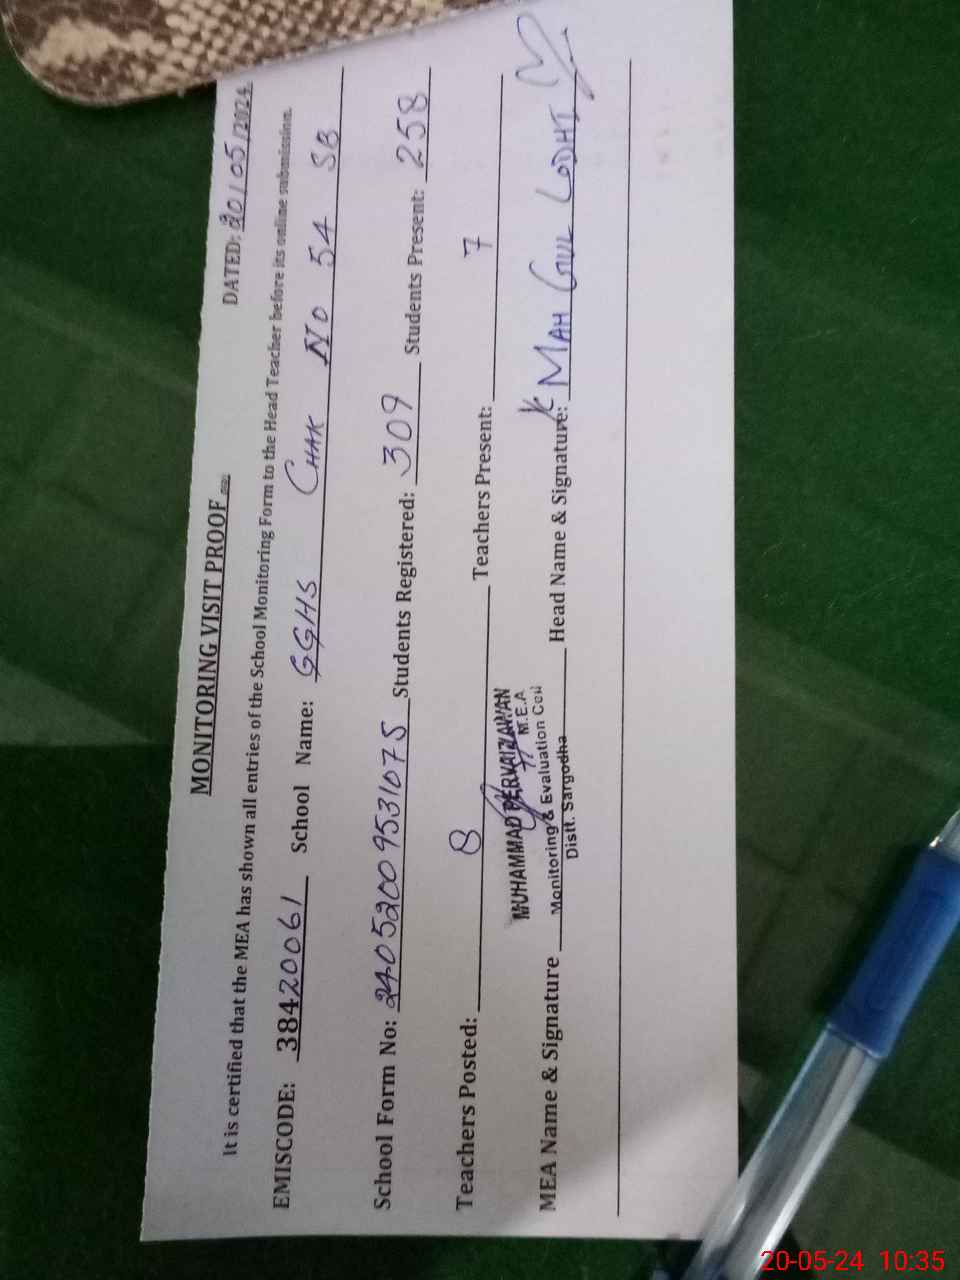 MONITORING VISIT PROOF
DATED: 20/05/2024
It is certified that the MEA has shown all entries of the School Monitoring Form to the Head Teacher before its online submission.
EMISCODE: 38420061 School Name: GGHS CHAK NO 54 SB
School Form No: 2405200953107S Students Registered: 309 Students Present: 258
Teachers Posted: 8 Teachers Present: 7
MUHAMMAD PERVAIZ AWAN
M.E.A
Monitoring & Evaluation Cell
Distt. Sargodha
MEA Name & Signature Head Name & Signature: MAH GUL LODHI
20-05-24 10:35